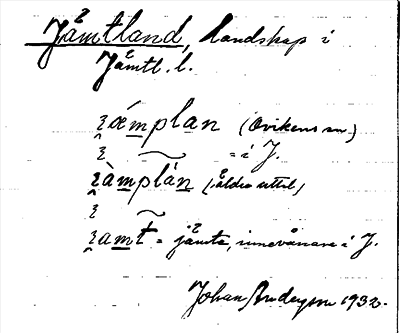 Jämtland, landskap i
Jämtl. l.
jǽmplan (Ovikens sn.)
= i J.
jàmplán (äldre uttal)
jamt = jämte, innevånare i J.
Johan 1932.